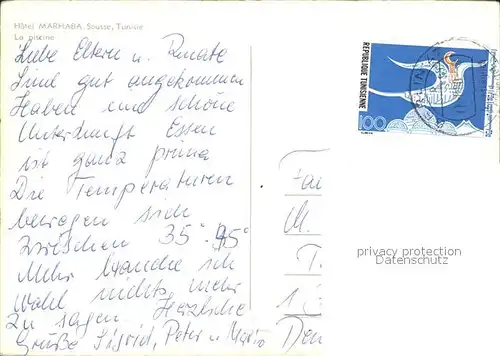 Hôtel MARHABA, Sousse, Tunisie
La piscine
Liebe Eltern u. Renate
Sind gut angekommen
Haben eine schöne
Unterkunft Essen
ist ganz prima
Die Temperaturen
bewegen sich
zwischen 35°-45°
Mehr brauche ich
wohl nichts mehr
zu sagen. Herzliche
Grüße Sigrid, Peter u. Mario
REPUBLIQUE TUNISIENNE
100
Fa
M.
T
1
Den
privacy protection
Datenschutz